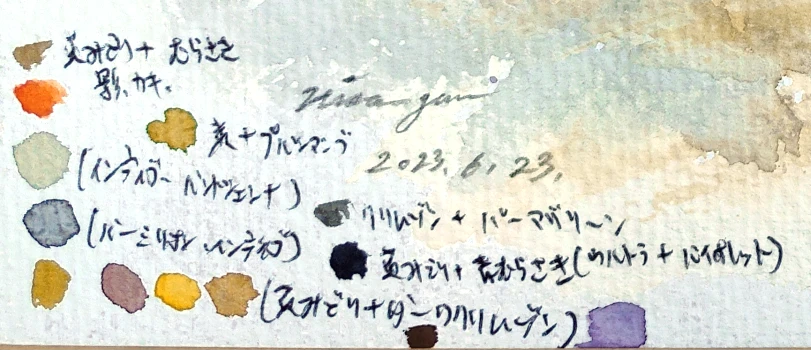 黄みどり + むらさき
影、カキ、
黄 + プルシャンブ
2023. 6. 23.
(インディゴー バーントシェンナ)
クリムゾン + パーマグリーン
(バーミリオン インディゴ)
黄みどり + 青むらさき (ウルトラ + バイオレット)
(黄みどり + ダークリムゾン)